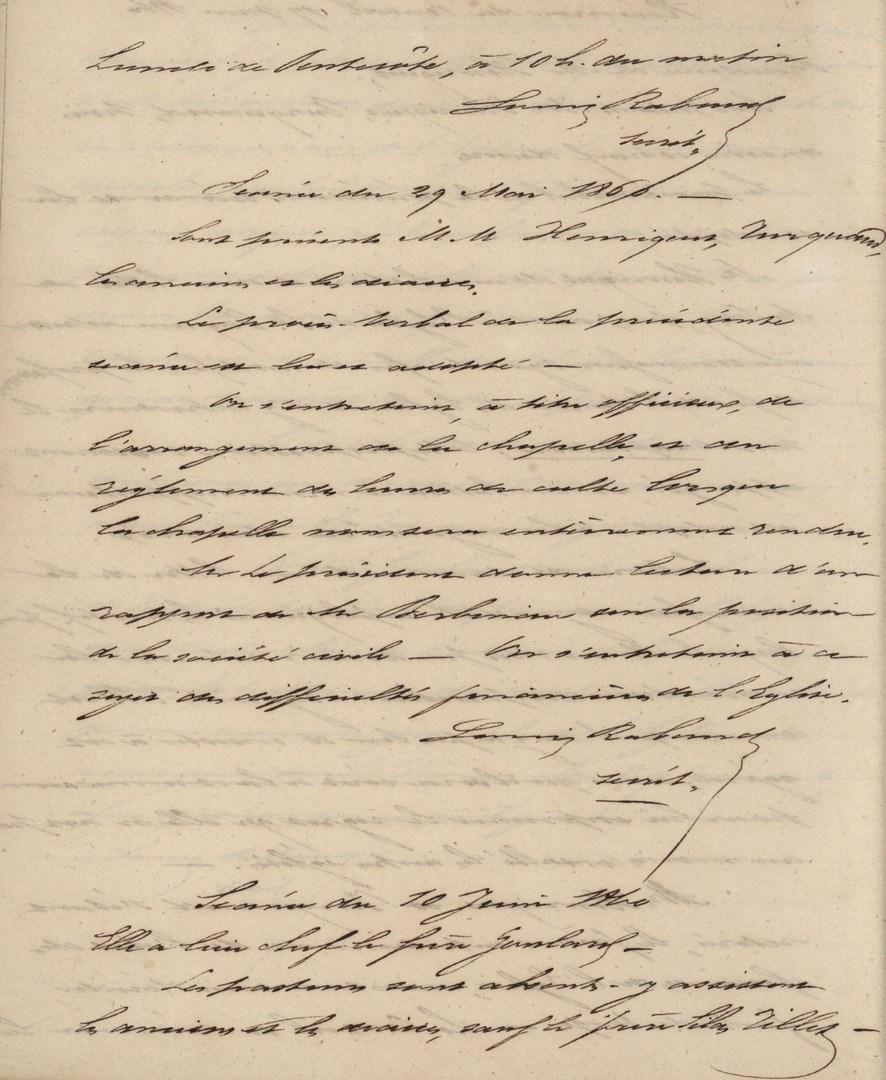 Lundi de Pentecôte, à 10 h. du matin
Louis Rabaud
secrét.
Séance du 29 Mai 1860. —
Sont présents M M Henriquet, Turquand,
les anciens et les diacres.
Le procès-verbal de la précédente
séance est lu et adopté —
On s'entretient, à titre officieux, de
l'arrangement de la chapelle, et du
règlement des heures de culte lorsque
la chapelle nous sera entièrement rendue.
Mr Le président donne lecture d'un
rapport de Mr sur la position
de la société civile — On s'entretient à ce
sujet des difficultés financières de l'Eglise.
Louis Rabaud
secrét.
Séance du 10 Juin 1860
Elle a lieu chez le frère
Les pasteurs sont absents - y assistent
les anciens et les diacres, sauf le frère Tillet —